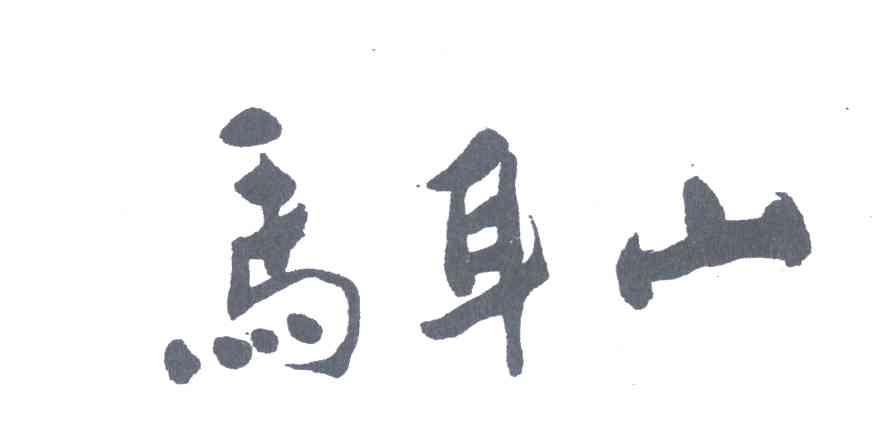 馬耳山